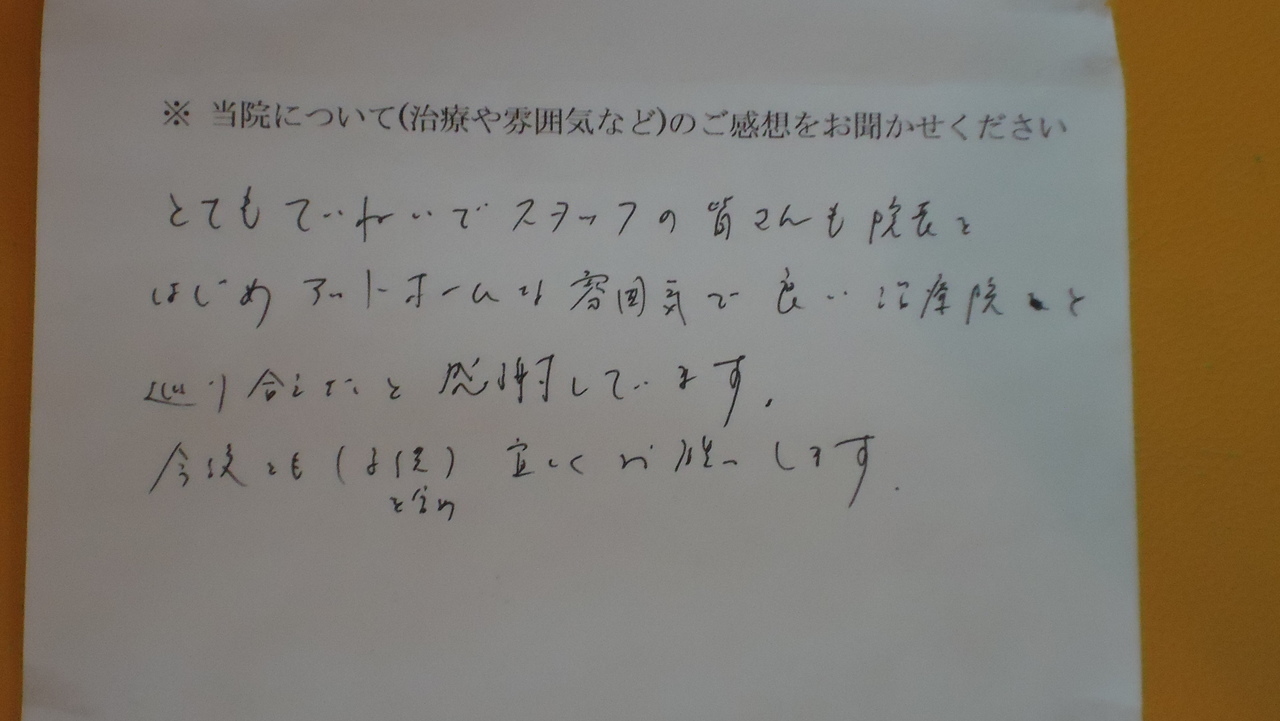 ※ 当院について(治療や雰囲気など)のご感想をお聞かせください
とてもていねいでスタッフの皆さんも院長を
はじめアットホームな雰囲気で良い治療院と
巡り合えたと感謝しています。
今後とも(子供)宜しくお願いします.
を含め